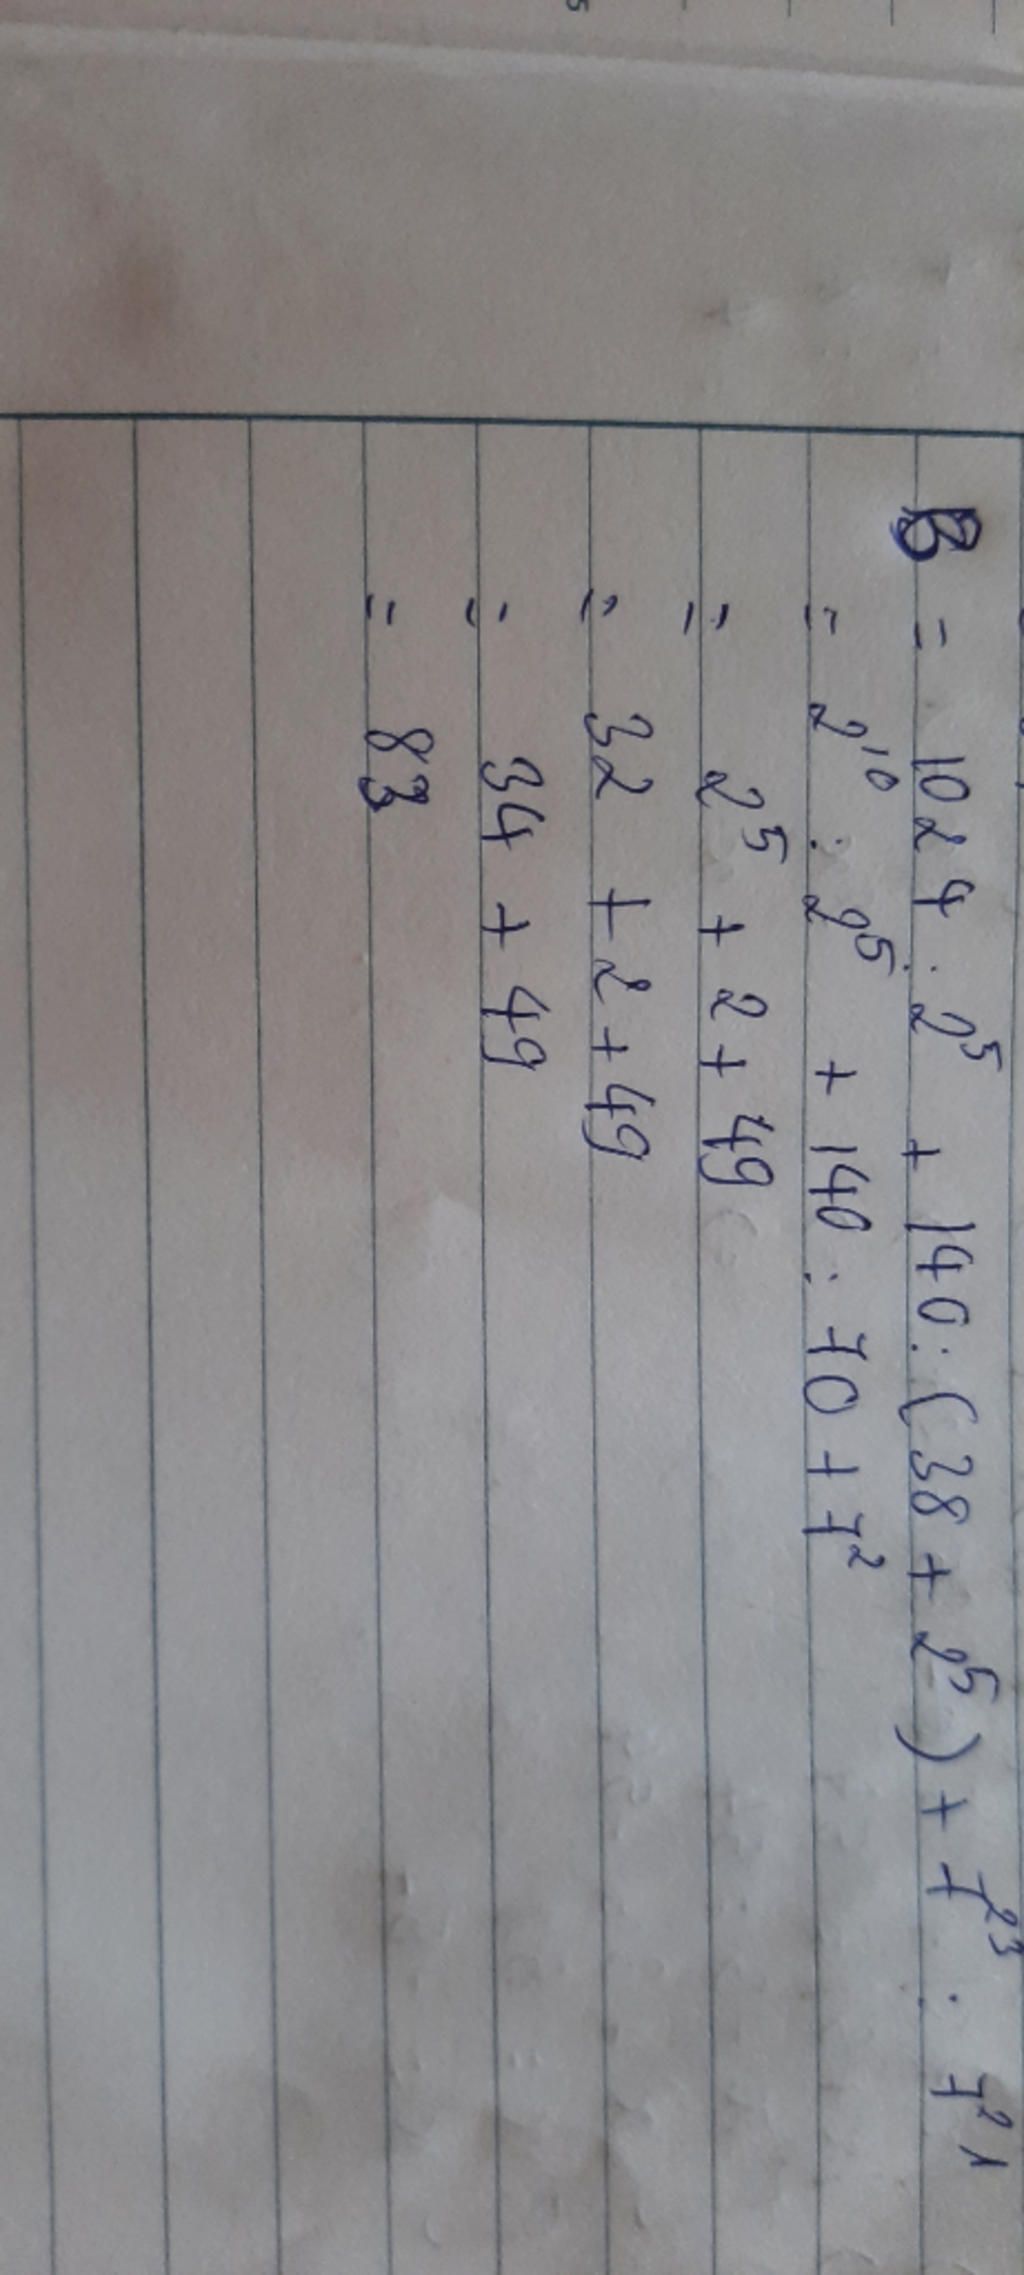 B = 1024 : 2⁵ + 140 : (38 + 2⁵) + 7²³ : 7²¹
= 2¹⁰ : 2⁵ + 140 : 70 + 7²
= 2⁵ + 2 + 49
= 32 + 2 + 49
= 34 + 49
= 83